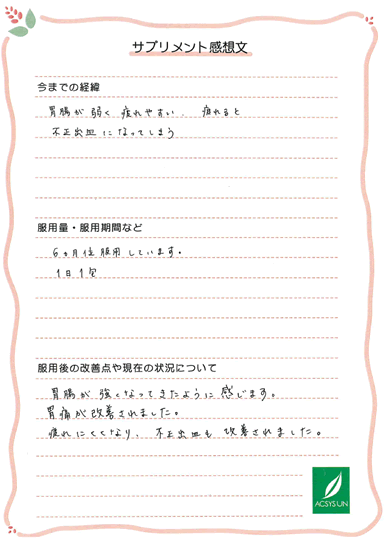 サプリメント感想文
今までの経緯
胃腸が弱く疲れやすい、疲れると
不正出血になってしまう
服用量・服用期間など
6ヵ月位服用しています。
1日1包
服用後の改善点や現在の状況について
胃腸が強くなってきたように感じます。
胃痛が改善されました。
疲れにくくなり、不正出血も改善されました。
ACSYS UN